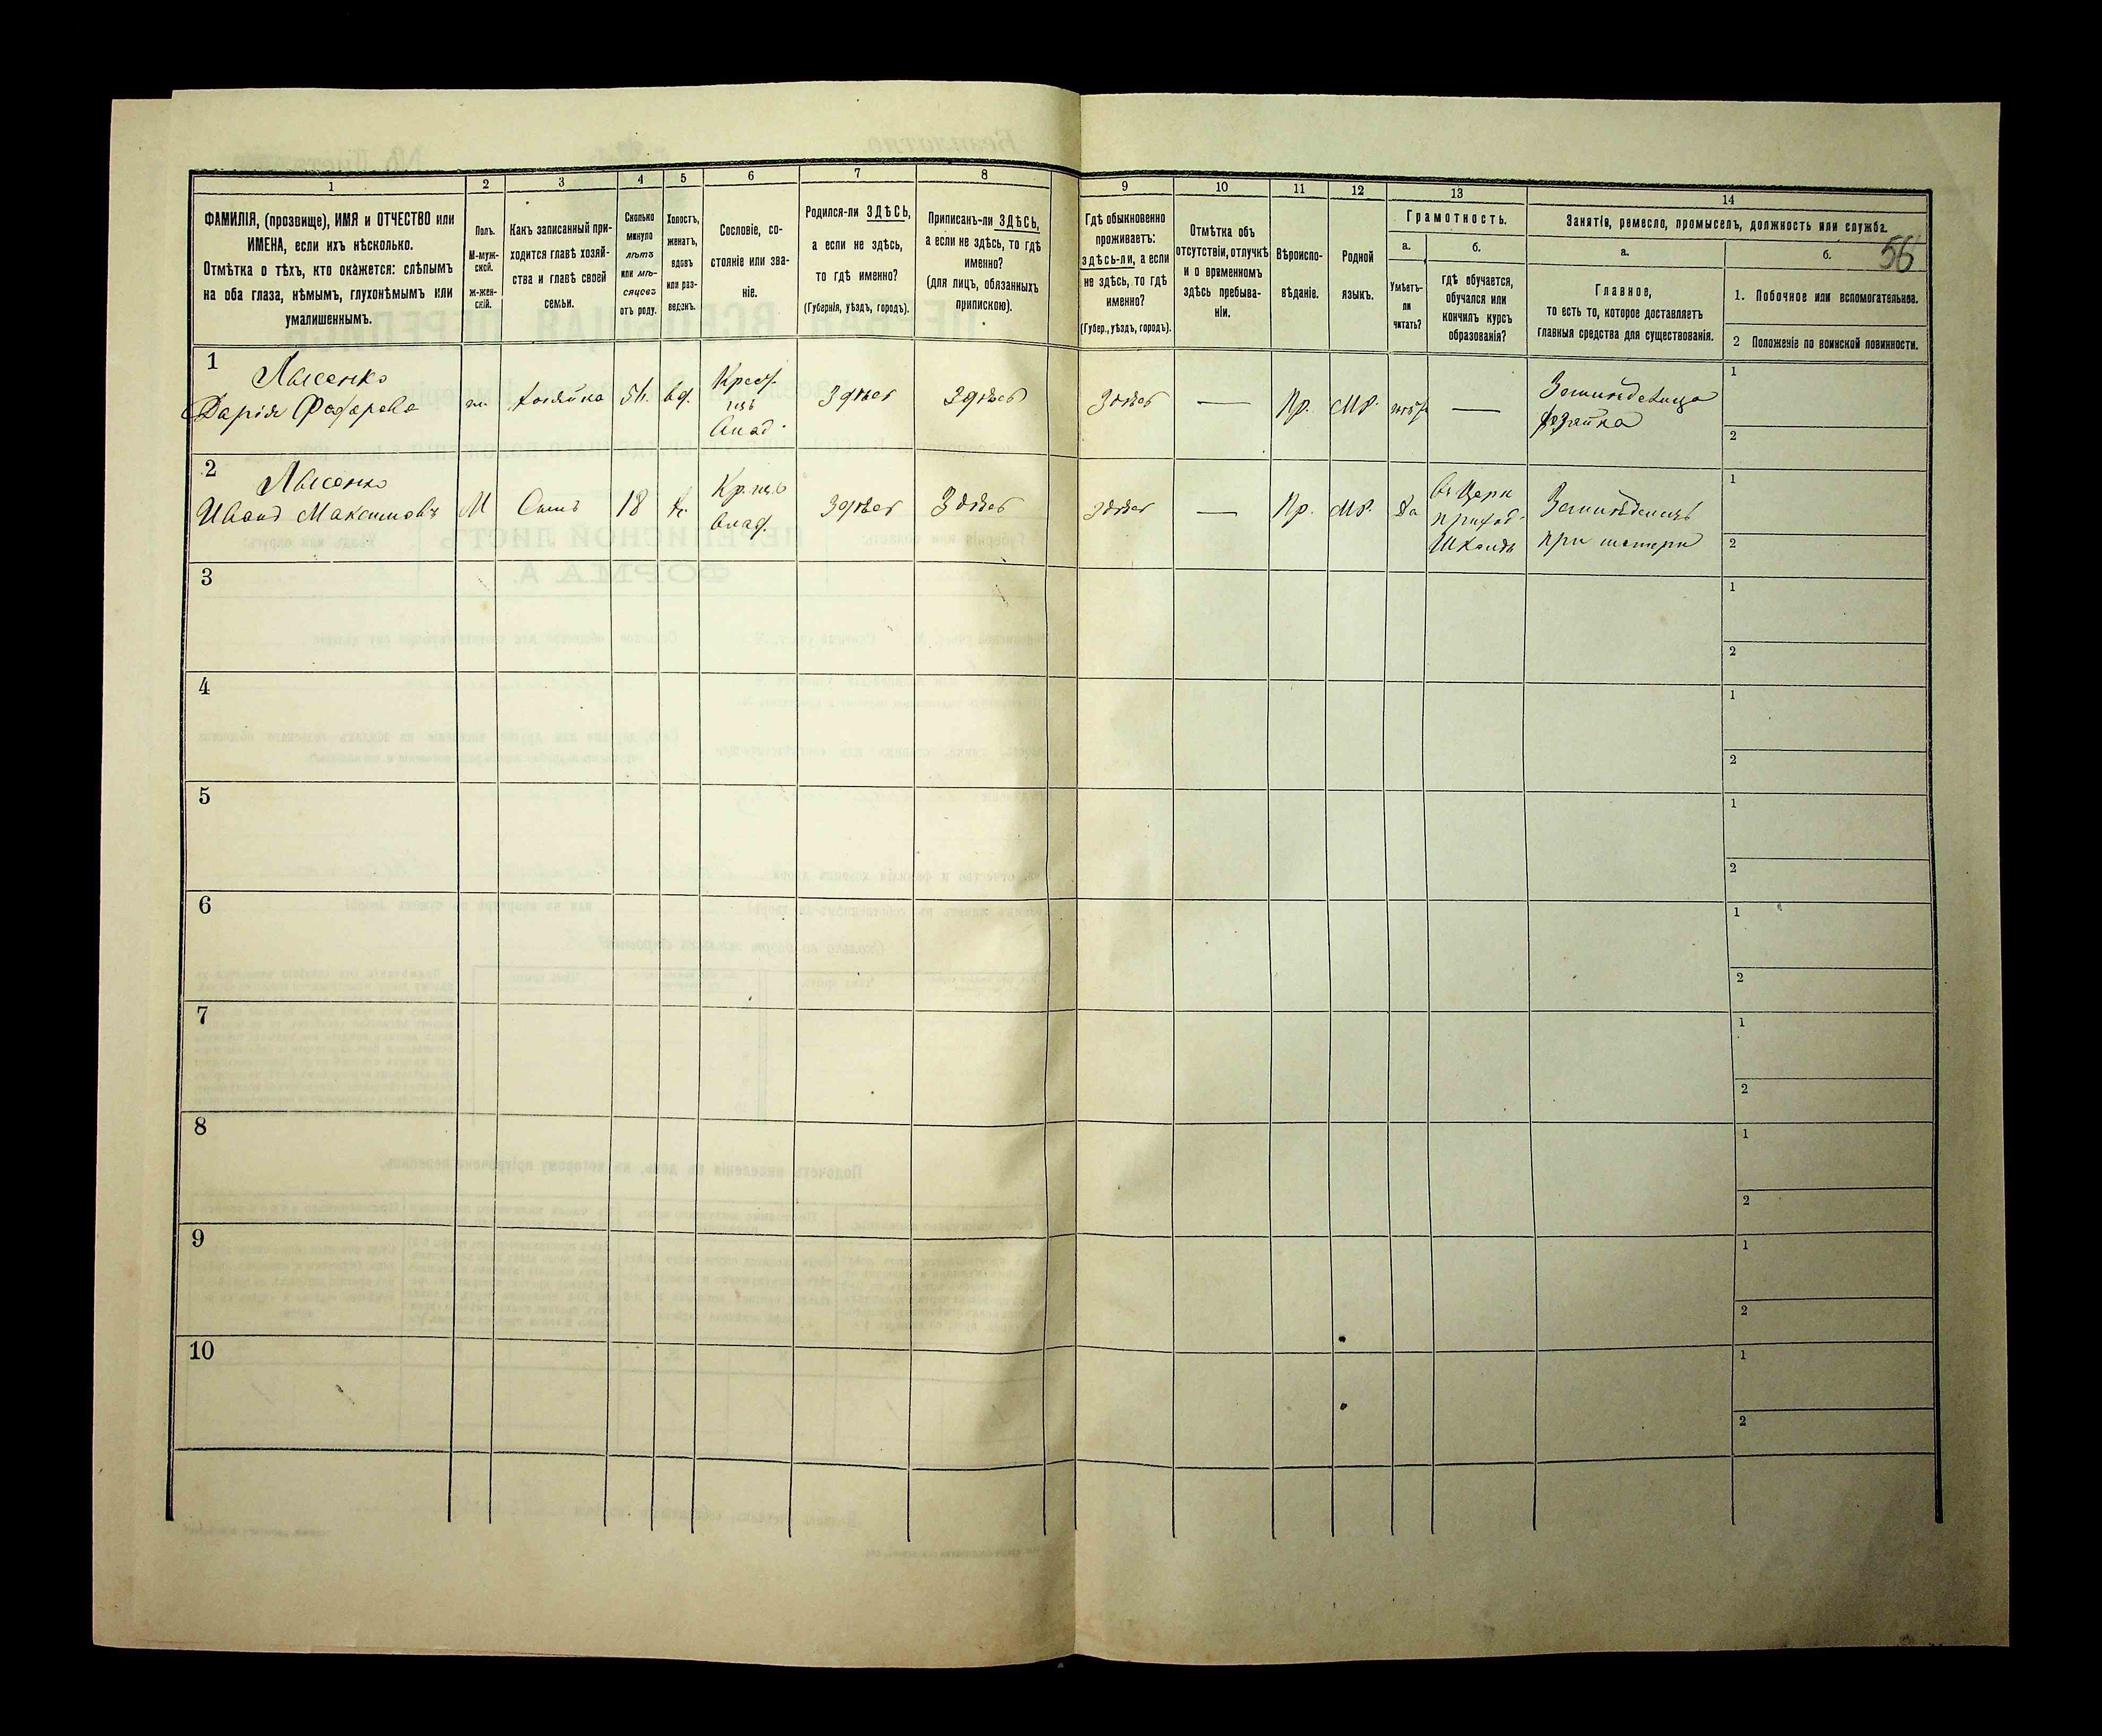 56
1
2
3
4
5
6
7
8
9
10
11
12
13
14
ФАМИЛІЯ, (прозвище), ИМЯ и ОТЧЕСТВО или
ИМЕНА, если ихъ нѣсколько.
Отмѣтка о тѣхъ, кто окажется: слѣпымъ
на оба глаза, нѣмымъ, глухонѣмымъ или
умалишеннымъ.
Полъ.
М-муж-
ской.
Ж-жен-
скій.
Какъ записанный при-
ходится главѣ хозяй-
ства и главѣ своей
семьи.
Сколько
минуло
лѣтъ
или мѣ-
сяцевъ
отъ роду.
Холостъ,
женатъ,
вдовъ
или раз-
веденъ.
Сословіе, со-
стояніе или зва-
ніе.
Родился-ли ЗДѢСЬ,
а если не здѣсь,
то гдѣ именно?
(Губернія, уѣздъ, городъ).
Приписанъ-ли ЗДѢСЬ,
а если не здѣсь, то гдѣ
именно?
(для лицъ, обязанныхъ
припискою).
Гдѣ обыкновенно
проживаетъ:
здѣсь-ли, а если
не здѣсь, то гдѣ
именно?
(Губер., уѣздъ, городъ).
Отмѣтка объ
отсутствіи, отлучкѣ
и о временномъ
здѣсь пребыва-
ніи.
Вѣроиспо-
вѣданіе.
Родной
языкъ.
Грамотность.
а.
Умѣетъ-
ли
читать?
б.
гдѣ обучается,
обучался или
кончилъ курсъ
образованія?
Занятіе, ремесло, промыселъ, должность или служба.
а.
Главное,
то есть то, которое доставляетъ
главныя средства для существованія.
б.
1. Побочное или вспомогательное.
2 Положеніе по воинской повинности.
1
Лысенко
Дарія Федорова
хозяйка
54.
вд.
Крест.
Влад.
здѣсь
здѣсь
здѣсь
—
Пр.
МР.
нѣтъ
—
хозяйка
1
2
2
Лысенко
Иванъ Максимовъ
М
Сынъ
18
х.
Влад.
здѣсь
здѣсь
здѣсь
—
Пр.
МР.
да
въ Церк
приход.
Школѣ
при матери
1
2
3
1
2
4
1
2
5
1
2
6
1
2
7
1
2
8
1
2
9
1
2
10
1
2